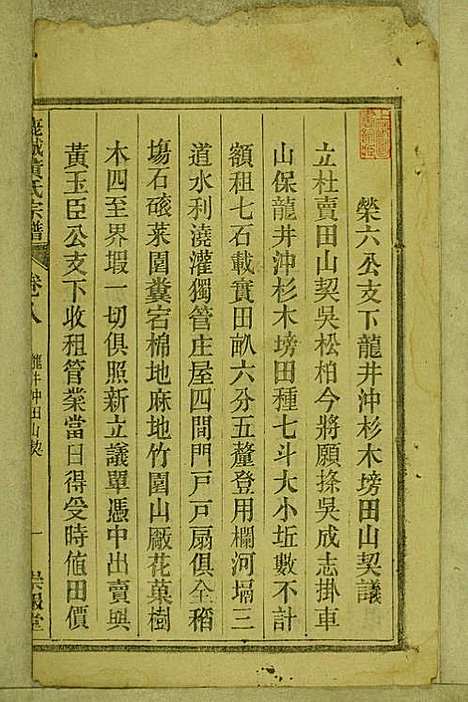 榮六公支下龍井沖杉木塝田山契議
立杜賣田山契吳松柏今將願捺吳成志掛車
山保龍井沖杉木塝田種七斗大小坵數不計
額租七石載實田畝六分五釐登用欄河堨三
道水利澆灌獨管庄屋四間門戸戸扇俱全稻
塲石磙菜園糞窖棉地麻地竹園山厰花菓樹
木四至界畷一切俱照新立議單憑中出賣與
黃玉臣公支下收租管業當日得受時値田價
黃氏宗譜
卷八
龍井沖田山契
一